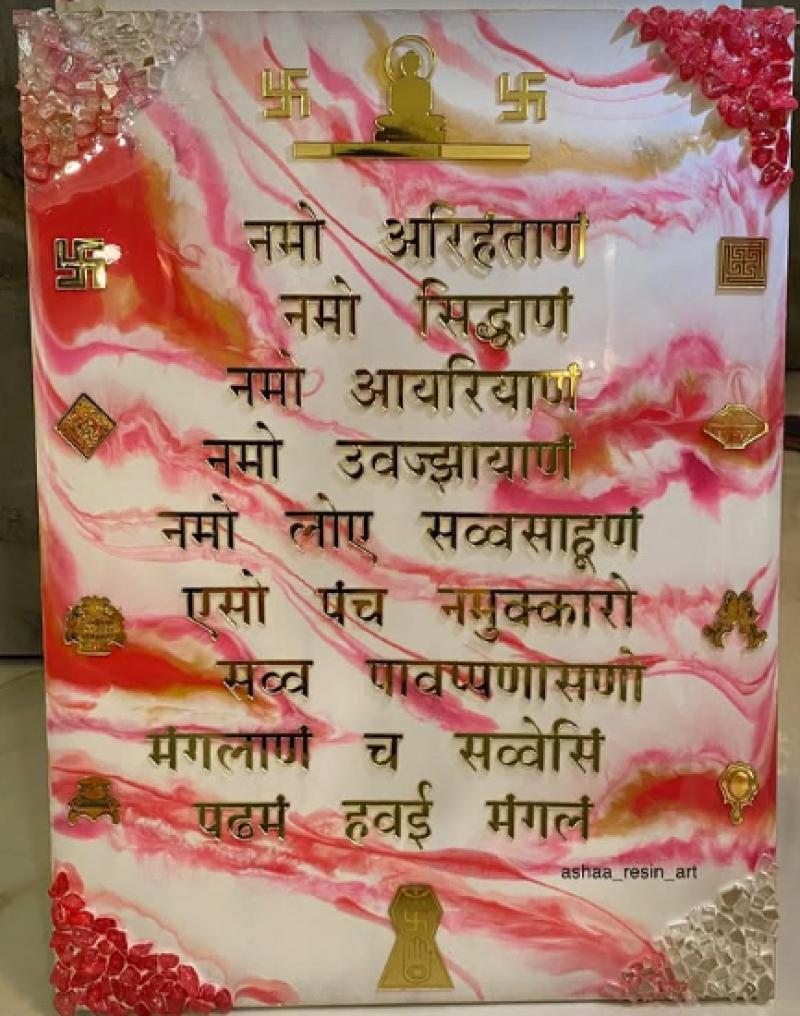 नमो अरिहंताणं
नमो सिद्धाणं
नमो आयरियाणं
नमो उवज्झायाणं
नमो लोए सव्वसाहूणं
एसो पंच नमुक्कारो
सव्व पावप्पणासणो
मंगलाणं च सव्वेसिं
पढमं हवई मंगलं
ashaa_resin_art